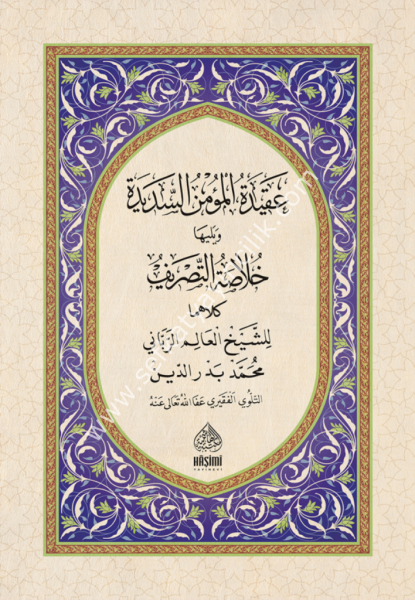 عَقِيدَةُ الْمُؤْمِنِ السَّدِيدَة
وَيَلِيهَا
خُلَاصَةُ التَّصْرِيفِ
كلاهما
لِلشَّيْخِ الْعَالِمِ الرَّبَّانِي
مُحَمَّدْ بَدْرِ الدِّين
التلوي الفقيري عفا الله تعالى عنه
HÂŞİMİ
YAYINEVİ